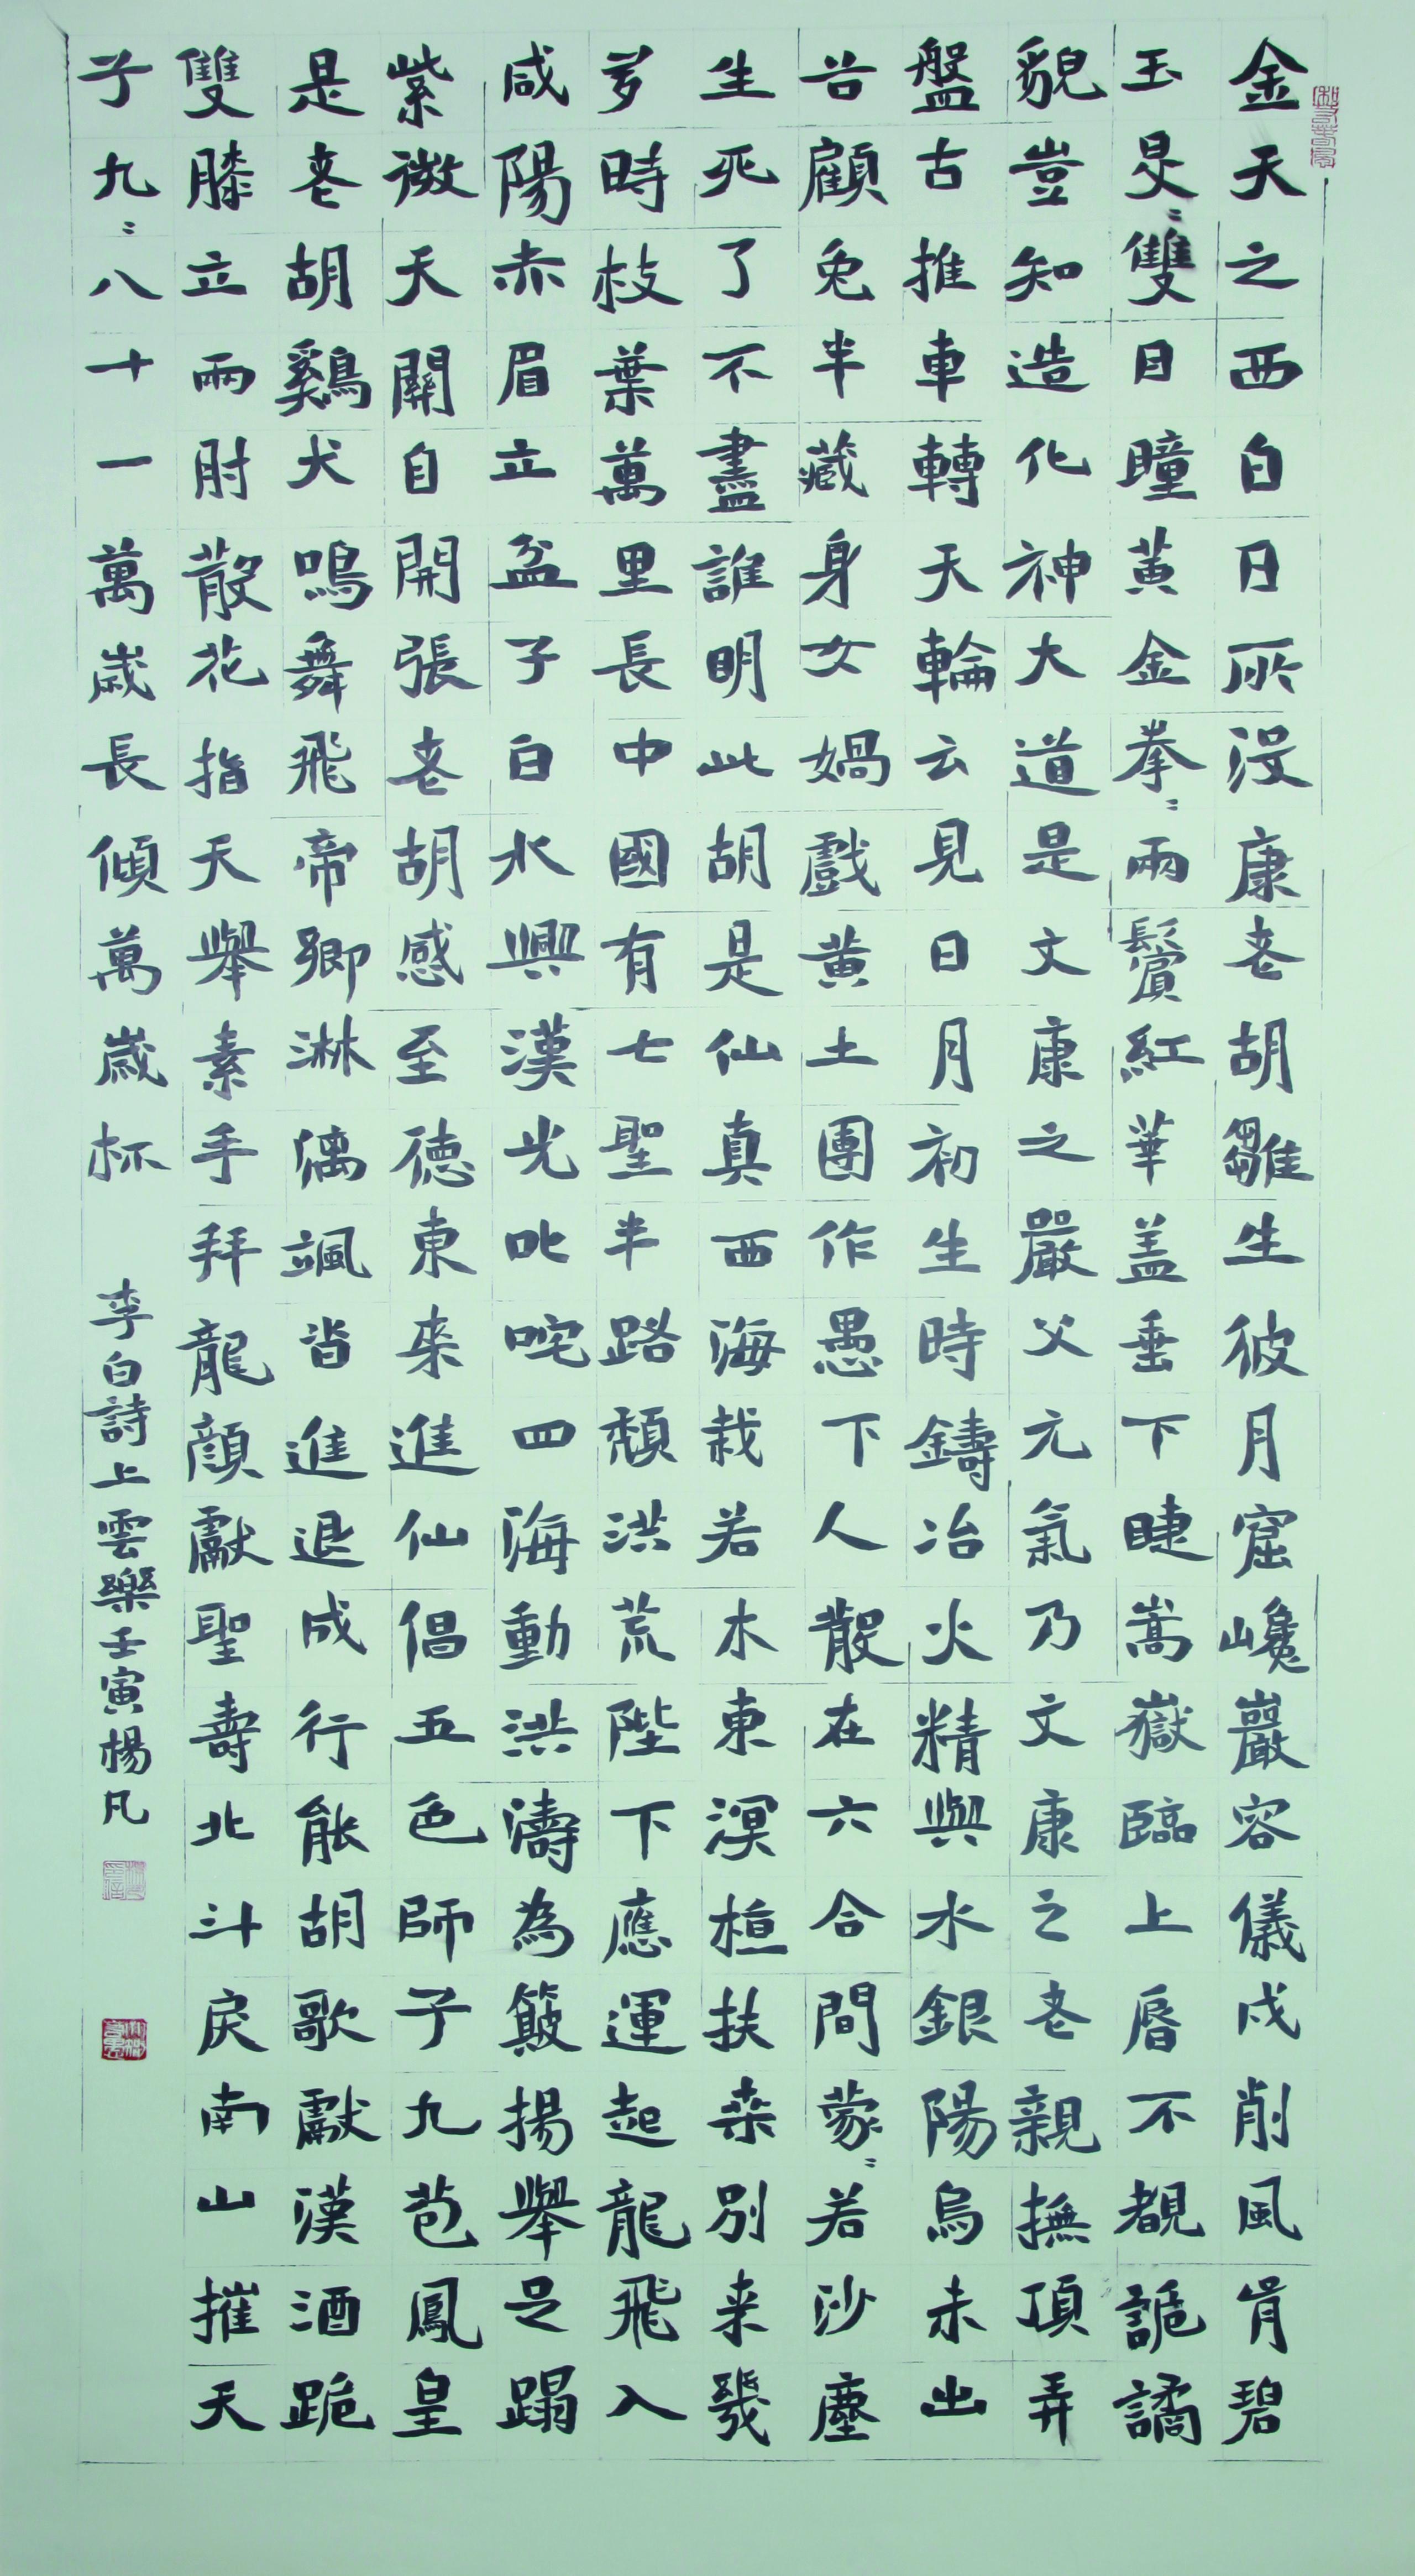 金天之西白日所没康老胡雛生彼月窟巉巖容儀戍削風骨碧
玉炅〻雙目瞳黄金拳〻兩鬢紅華盖垂下睫嵩嶽臨上唇不覩詭譎
貌豈知造化神大道是文康之嚴父元氣乃文康之老親撫頂弄
盤古推車轉天輪云見日月初生時鑄冶火精與水銀陽烏未出
谷顧兔半藏身女媧戲黄土團作愚下人散在六合間蒙〻若沙塵
生死了不盡誰明此胡是仙真西海栽若木東溟植扶桑別来幾
多時枝葉萬里長中國有七聖半路頹洪荒陛下應運起龍飛入
咸陽赤眉立盆子白水興漢光叱咤四海動洪濤為簸揚舉足蹋
紫微天關自開張老胡感至德東来進仙倡五色師子九苞鳳皇
是老胡鷄犬鳴舞飛帝鄉淋漓颯沓進退成行能胡歌獻漢酒跪
雙膝立兩肘散花指天舉素手拜龍顔獻聖壽北斗戾南山摧天
子九〻八十一萬歲長傾萬歲杯
李白詩上雲樂壬寅楊凡